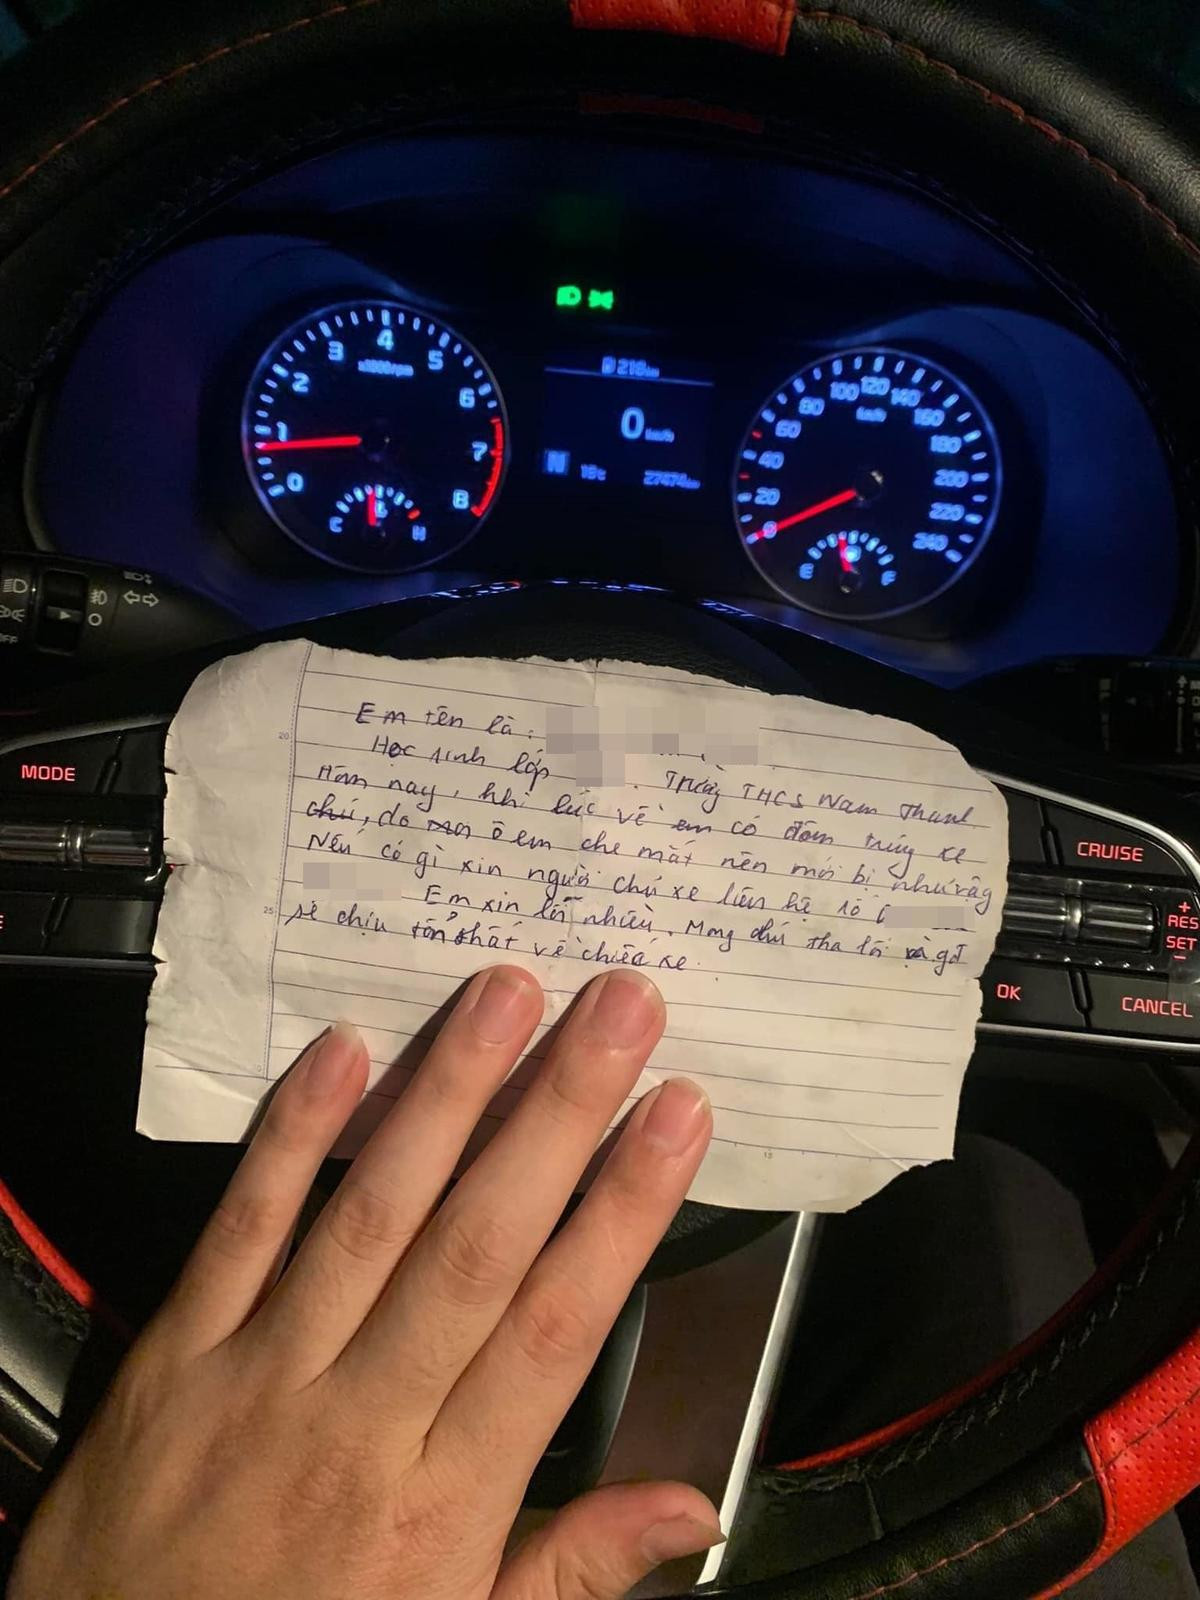 4
3
5
x1000/rpm
2
6
1
7
0
8
C
H
218km
0 km/h
N
27474km
100
120
140
80
160
km/h
60
180
40
200
20
220
0
240
E
F
OFF
MODE
CRUISE
+
RES
SET
−
OK
CANCEL
20
25
15
Em tên là :
Học sinh lớp . Trường THCS Nam Thanh
Hôm nay, khi lúc về em có đâm trúng xe
chú, do ô em che mắt nên mới bị như vậy
Nếu có gì xin người chủ xe liên hệ số
Em xin lỗi nhiều. Mong chú tha lỗi và gđ
sẽ chịu tổn thất về chiếc xe.